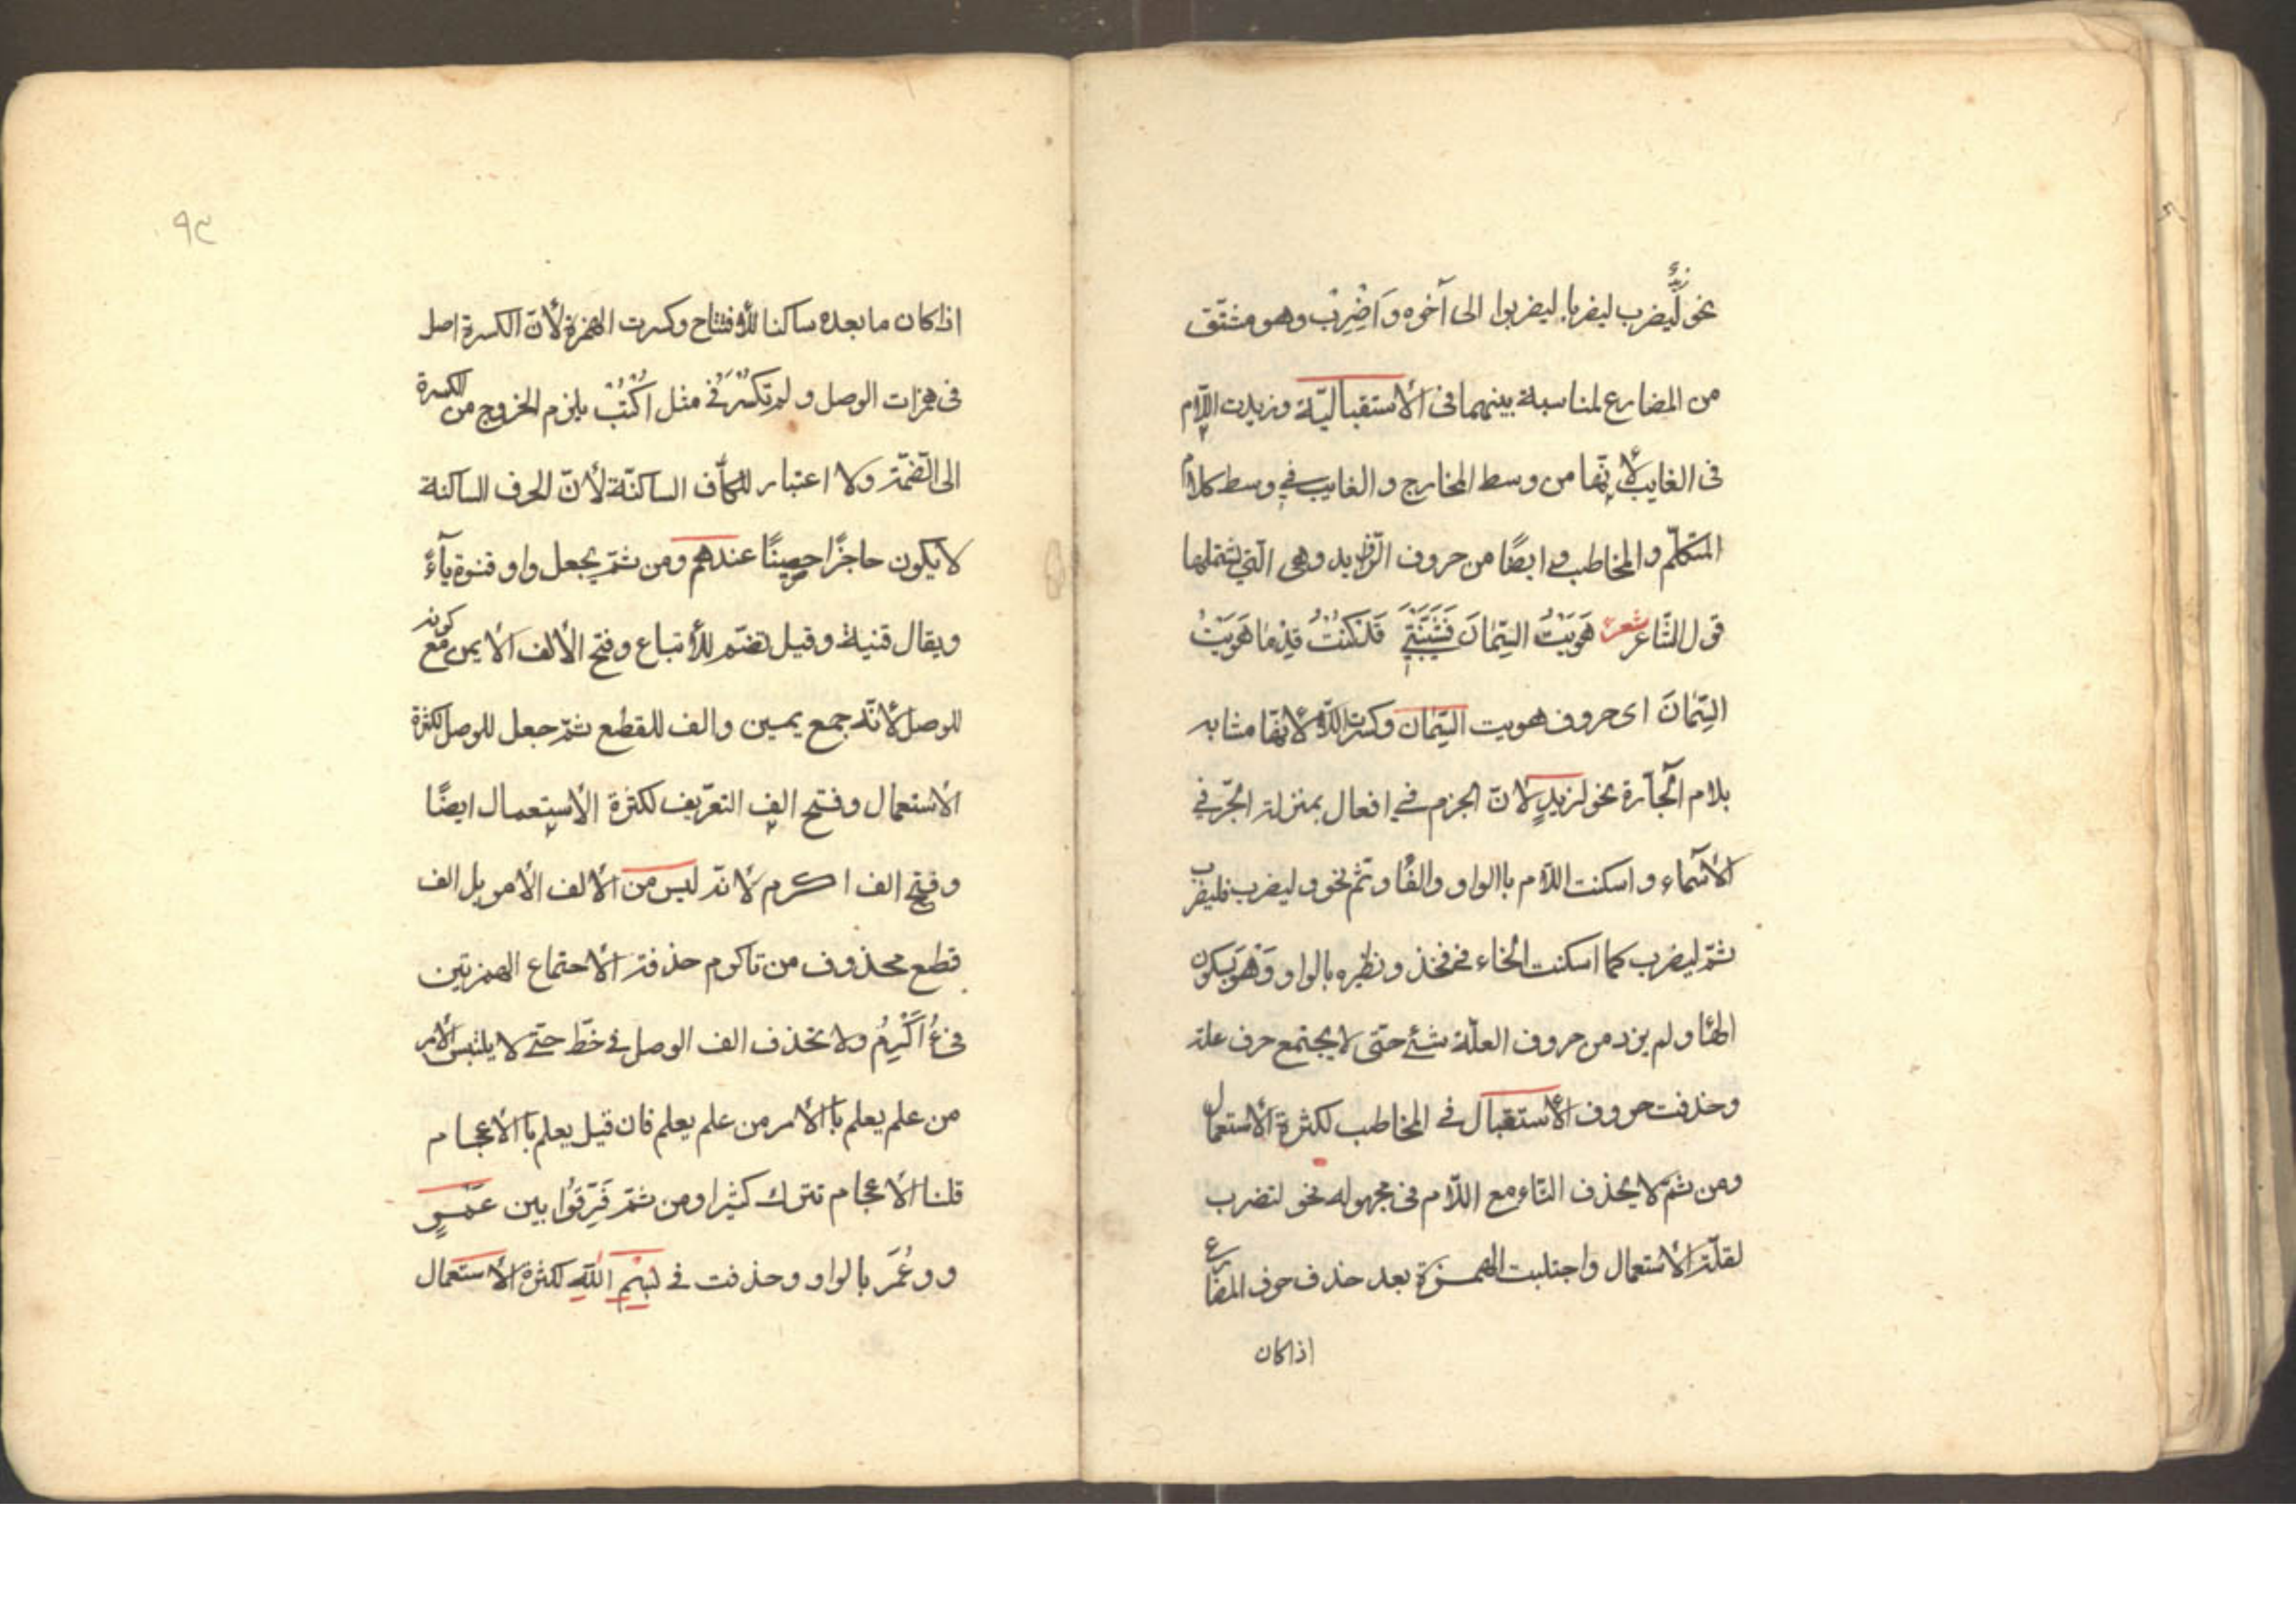 زيد
نحو ليضرب ليضربا ليضربوا الى آخره وَاَضِرِبْ وهو مشتق
من المضارع لمناسبة بينهما فى الأستقباليّة وزيدت اللّام
فى الغايب لأنّها من وسط المخارج والغايب فى وسط كلام
المتكلّم والمخاطب و ايضًا من حروف الزّوايد وهى الّتى يشتملها
قول الشّاعر شعر هَوَيْتُ السِّمَانَ فَشَيَّبَتْنِي قَدْ كُنْتُ قِدْمًا هَوَيْتُ
السِّمَانَ اى حروف هويت السِّمان وكسرت اللّام لأنّها مشابه
بلام الجآرة نحو لزيدٍ لانّ الجزم في افعال بمنزلة الجّر في
الأسمآء و اسكنت اللّام باالواو والفأ و ثّم نحو و ليضرب فليضرب
ثمّ ليضرب كما اسكنت الخاء فى فخذ و نظيره بالواو وَهْوَ بسكون
الهأ و لم يزد من حروف العلّة شئ حتّى لا يجتمع حرف علة
وحذفت حروف الأستقبال فى المخاطب لكثرة الأستعمال
ومن ثمّ لا يحذف التاء مع اللّام فى مجهوله نحو لتضرب
لقلّة الأستعمال واجتلبت الهمزة بعد حذف حرف المضارع
اذا كان
٩٢
اذا كان ما بعده ساكنا للأفتتاح وكسرت الهمزة لأنّ الكسرة اصل
فى همزات الوصل و لم تكسر فى مثل اُكْتُبْ يلزم الخروج من الكسرة
الى الضّمّة ولا اعتبار للكاف الساكنّة لأنّ الحرف الساكنة
لا يكون حاجزًا حصينًا عندهم ومن ثمّ يجعل واو قنوة يآءً
ويقال قنية وقيل تضّم للأتباع وفتح الألف الأيمن مع كونه
للوصل لأنّه جمع يمين والف للقطع ثمّ جعل للوصل لكثرة
الأستعمال وفتح الف التعرّيف لكثرة الأستعمال ايضًا
وفتح الف اكرم لأنّه ليس من الألف الأمر بل الف
قطع محذوف من تاكرم حذفت الأحتماع الهمزتين
فى ءُاَكْرِمُ ولا تحذف الف الوصل فى خّط حتّى لا يلتبس الأمر
من علم يعلم بأالأمر من علم يعلم فان قيل يعلم بأالأعجام
قلنا الأعجام تترك كثيرا ومن ثمّ فَرّقُوا بين عَمْرٍو
وو عُمَرَ بالواو وحذفت فى بِسْمِ اللّٰهِ لكثرة الأستعمال